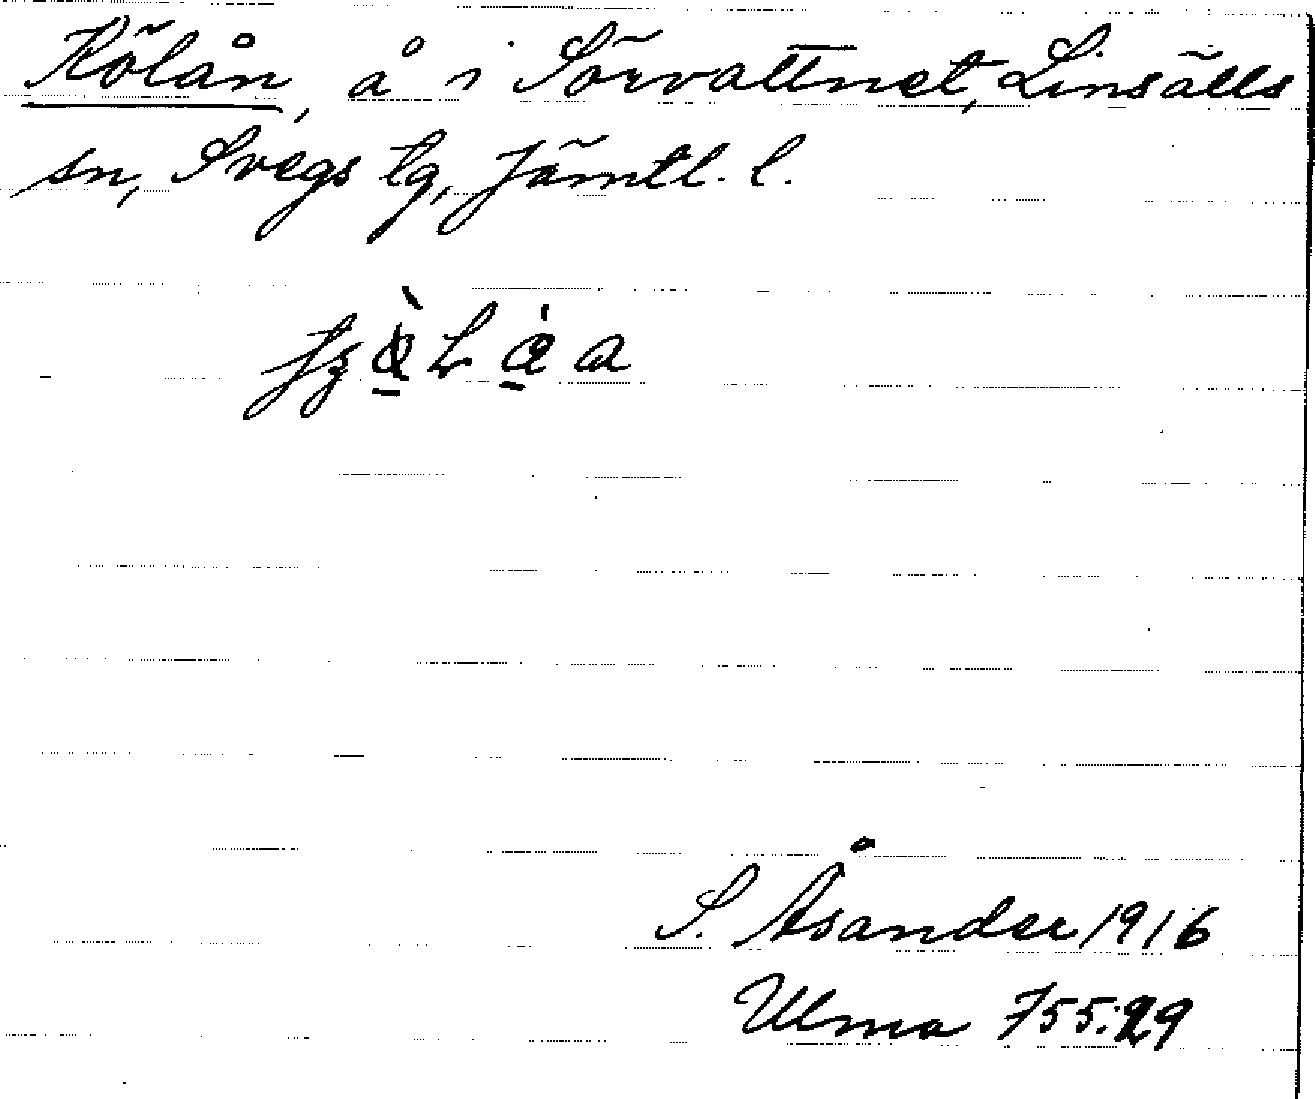 Kölån, å i Sörvattnet, Linsälls
sn, Svegs tg, Jämtl. l.
S. Åsander 1916
Ulma 755:29